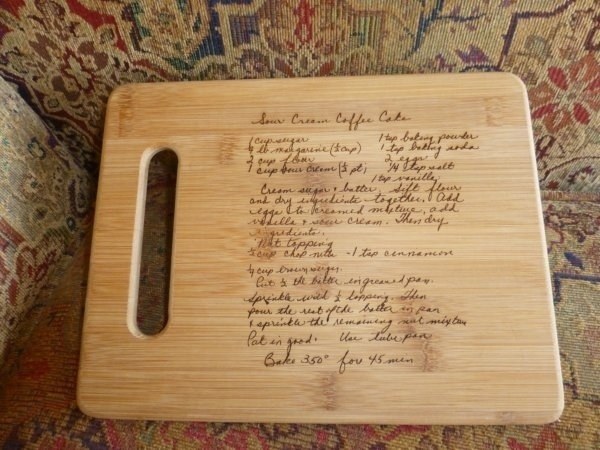 Sour Cream Coffee Cake
1 cup sugar 1 tsp baking powder
¼ lb. margarine (½ cup) 1 tsp baking soda
2 cup flour 2 eggs
1 cup sour cream (½ pt) ¼ tsp salt
1 tsp vanilla
Cream sugar & butter, Sift flour
and dry ingredients together. Add
eggs to creamed mixture, add
vanilla & sour cream. Then dry
ingredients.
Nut topping
cup chop nuts - 1 tsp cinnamon
¼ cup brown sugar.
Put ½ the batter in greased pan.
Sprinkle with ½ topping. Then
pour the rest of the batter in pan
& sprinkle the remaining nut mixture
Pat in good. Use tube pan
Bake 350° for 45 min